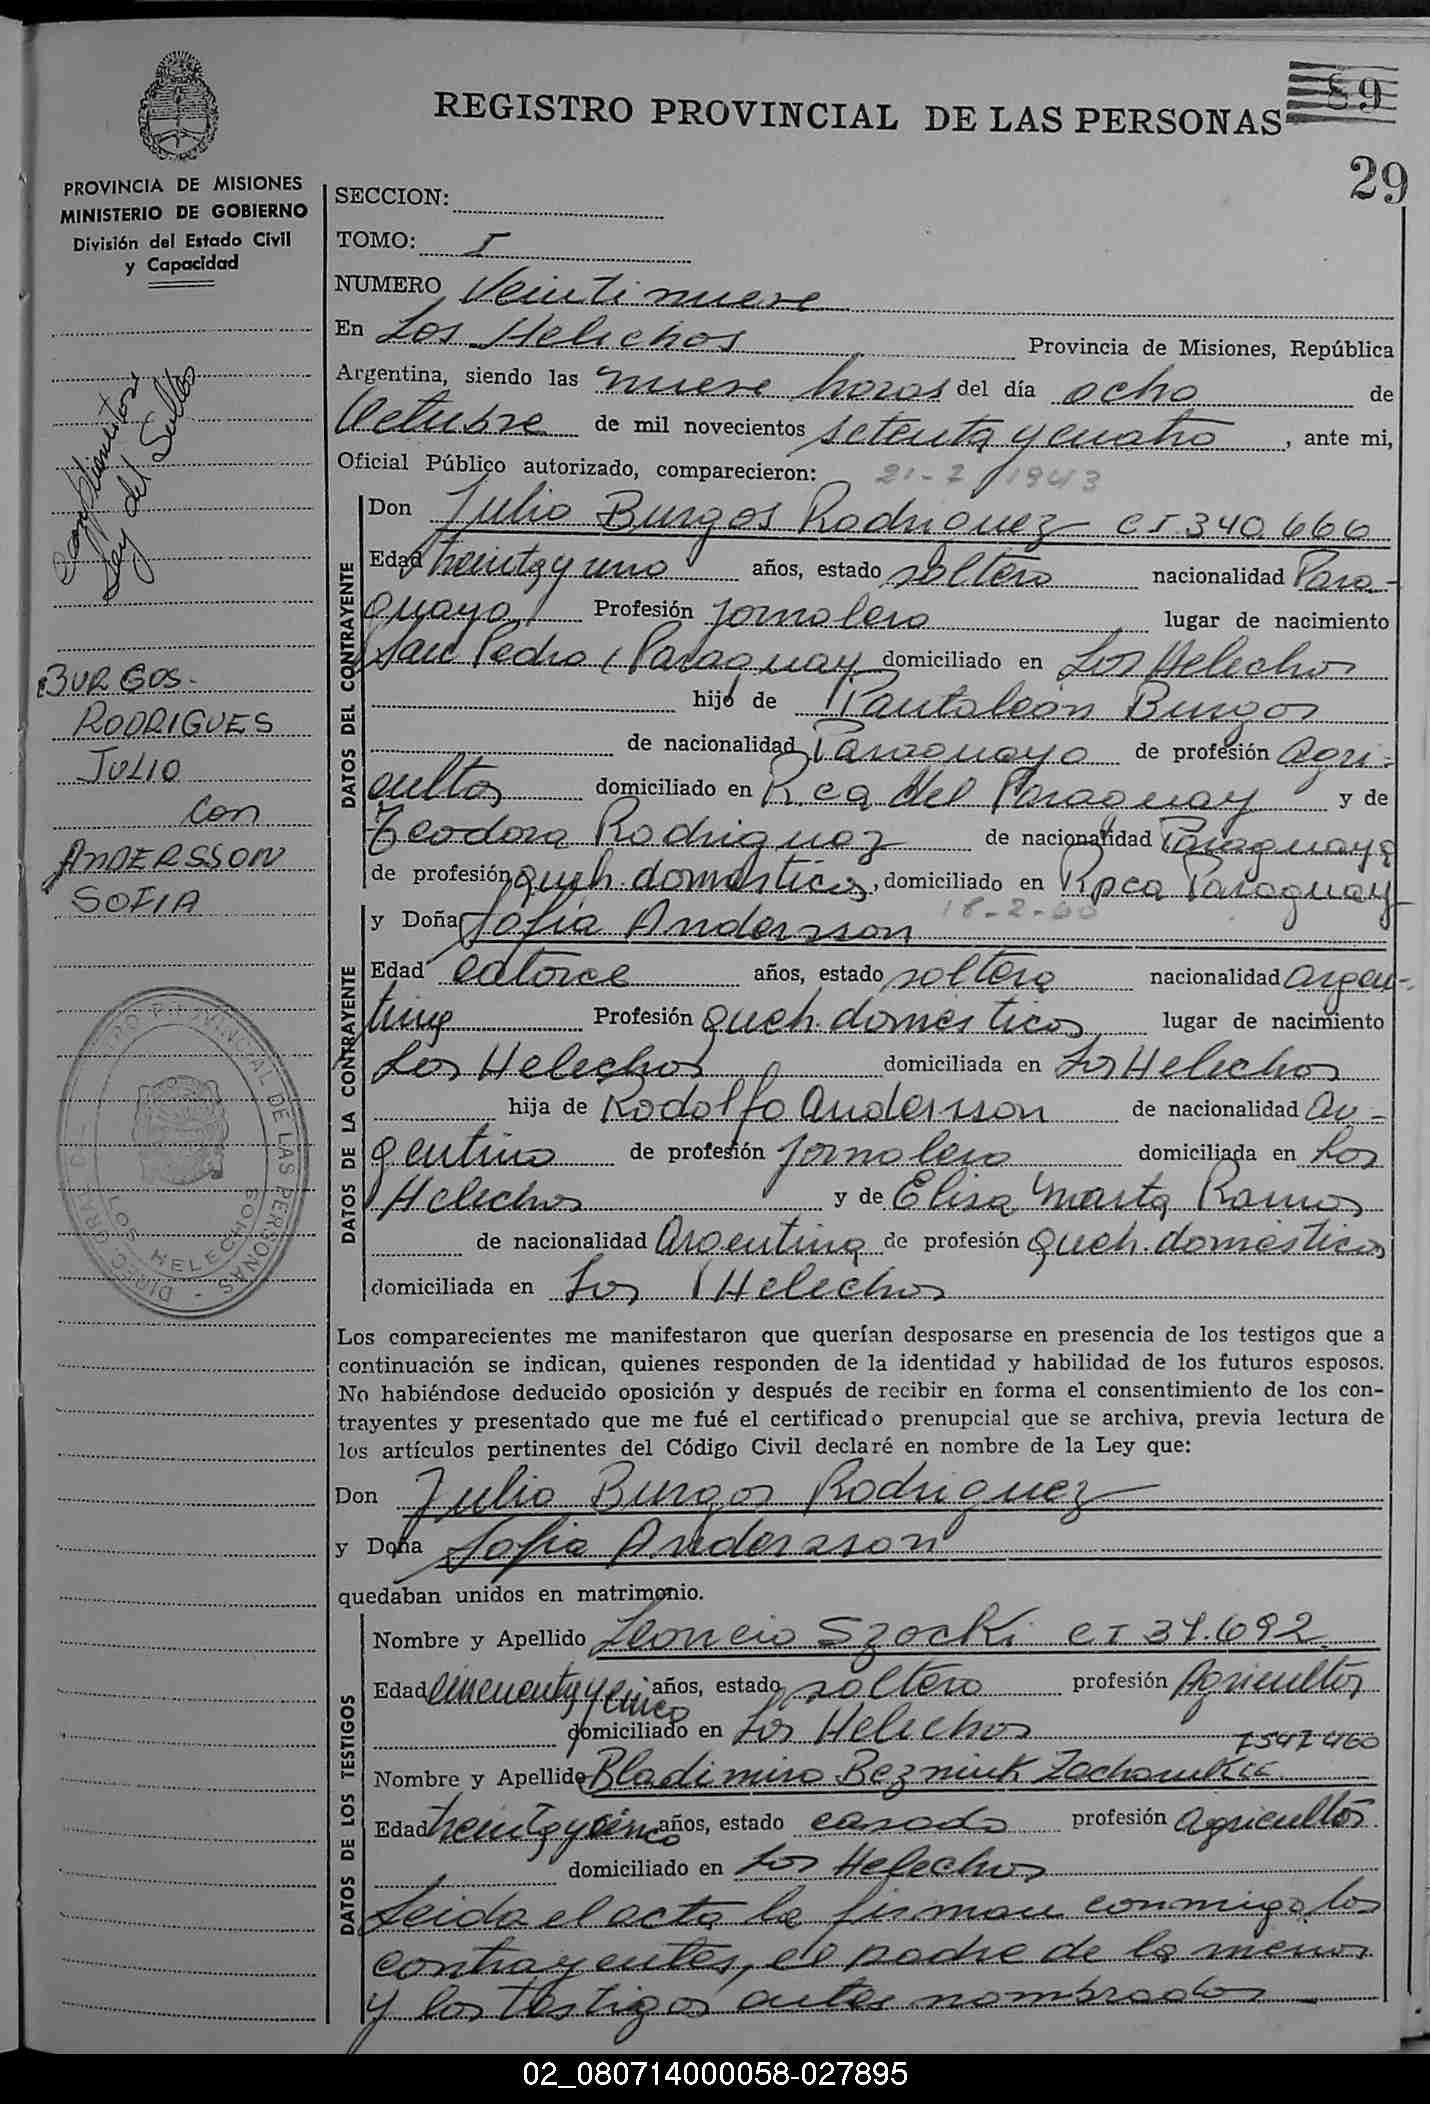 REGISTRO PROVINCIAL DE LAS PERSONAS
89
29
PROVINCIA DE MISIONES
MINISTERIO DE GOBIERNO
División del Estado Civil
y Capacidad
SECCION:
TOMO: I
NUMERO Veintinueve
En Los Helechos Provincia de Misiones, República
Argentina, siendo las nueve horas del día ocho de
Octubre de mil novecientos setenta y cuatro, ante mi,
Oficial Público autorizado, comparecieron: 21-7 1943
DATOS DEL CONTRAYENTE
Don Julio Burgos Rodriguez CI 340.666
Edad treinta y uno años, estado soltero nacionalidad Para-
guaya Profesión jornalero lugar de nacimiento
San Pedro, Paraguay domiciliado en Los Helechos
hijo de Pantaleón Burgos
de nacionalidad Paraguayo de profesión agri-
cultor domiciliado en Rca del Paraguay y de
Teodora Rodriguez de nacionalidad Paraguaya
de profesión queh. domésticos, domiciliado en Rpca Paraguay
18-2-60
DATOS DE LA CONTRAYENTE
y Doña Sofia Andersson
Edad catorce años, estado soltera nacionalidad argen-
tina Profesión queh. domésticos lugar de nacimiento
Los Helechos domiciliada en Los Helechos
hija de Rodolfo Andersson de nacionalidad Ar-
gentino de profesión jornalero domiciliada en Los
Helechos y de Elisa Marta Ramos
de nacionalidad Argentina de profesión queh. domésticos
domiciliada en Los Helechos
Los comparecientes me manifestaron que querían desposarse en presencia de los testigos que a
continuación se indican, quienes responden de la identidad y habilidad de los futuros esposos.
No habiéndose deducido oposición y después de recibir en forma el consentimiento de los con-
trayentes y presentado que me fué el certificado prenupcial que se archiva, previa lectura de
los artículos pertinentes del Código Civil declaré en nombre de la Ley que:
Don Julio Burgos Rodriguez
y Doña Sofia Andersson
quedaban unidos en matrimonio.
DATOS DE LOS TESTIGOS
Nombre y Apellido Leoncio Szocki CI 34.692
Edad cincuenta y cinco años, estado soltero profesión Agricultor
domiciliado en Los Helechos
7547460
Nombre y Apellido Bladimiro Bezniuk
Edad treinta y cinco años, estado casado profesión agricultor
domiciliado en Los Helechos
Leida el acta la firman conmigo los
contrayentes, el padre de la menor
y los testigos antes nombrados
ley del Sellos
BURGOS
RODRIGUES
JULIO
con
ANDERSSON
SOFIA
PROVINCIAL DE LAS PERSONAS - DIREC. GRAL.
LOS HELECHOS
02_080714000058-027895